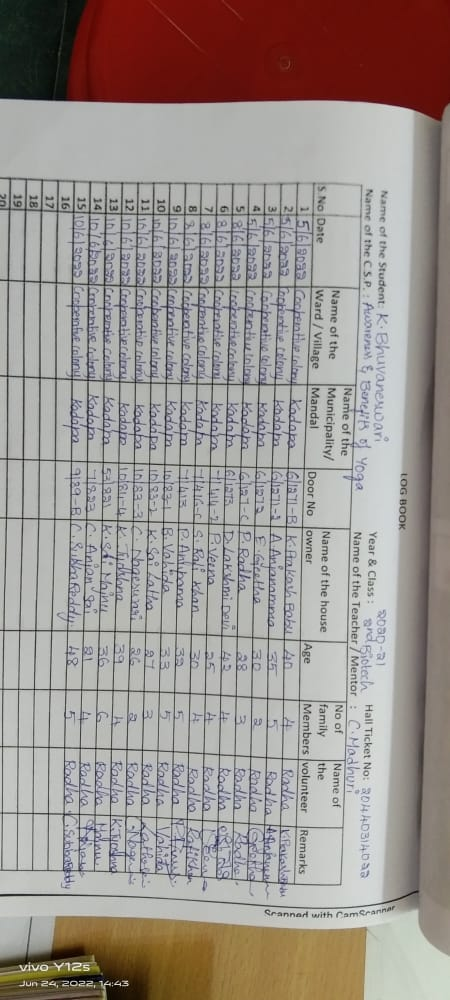 LOG BOOK
Name of the Student: K. Bhuvaneswari Year & Class : 2020-21 2nd Biotech Hall Ticket No: 20440314022
Name of the C.S.P. : Awareness & Benefits of Yoga Name of the Teacher / Mentor : C. Madhuri
S.No Date Name of the Ward / Village Name of the Municipality/ Mandal Door No Name of the house owner Age No of family Members Name of the volunteer Remarks
1 5/6/2022 Cooperative colony Kadapa 6/1271-B K. Prakash Babu 40 4 Radha
2 5/6/2022 Cooperative colony Kadapa 6/1271-2 A. Anjanamma 35 5 Radha
3 5/6/2022 Cooperative colony Kadapa 6/1272 E. Geetha 30 2 Radha Geetha
4 5/6/2022 Cooperative colony Kadapa 6/1271-C P. Radha 28 3 Radha Radha
5 8/6/2022 Cooperative colony Kadapa 6/1273 D. Lakshmi Devi 42 4 Radha
6 8/6/2022 Cooperative colony Kadapa 7/414-2 P. Veena 25 4 Radha
7 8/6/2022 Cooperative colony Kadapa 7/416-C S. Rafi Khan 30 4 Radha
8 8/6/2022 Cooperative colony Kadapa 7/413 P. 32 5 Radha
9 10/6/2022 Cooperative colony Kadapa 10/83-1 B. Vahida 33 5 Radha Vahida
10 10/6/2022 Cooperative colony Kadapa 10/83-2 K. Sai Latha 27 3 Radha
11 10/6/2022 Cooperative colony Kadapa 10/83-3 C. Nageswari 26 2 Radha
12 10/6/2022 Cooperative colony Kadapa 10/81-4 K. 39 4 Radha
13 10/6/2022 Cooperative colony Kadapa 53/821 K. 36 6 Radha
14 10/6/2022 Cooperative colony Kadapa 7/823 C. Arjun Sai 21 4 Radha
15 10/6/2022 Cooperative colony Kadapa 9/29-B C. Subba Reddy 48 5 Radha C. Subba Reddy
16
17
18
19
20
Scanned with CamScanner
vivo Y12s
Jun 24, 2022, 14:43